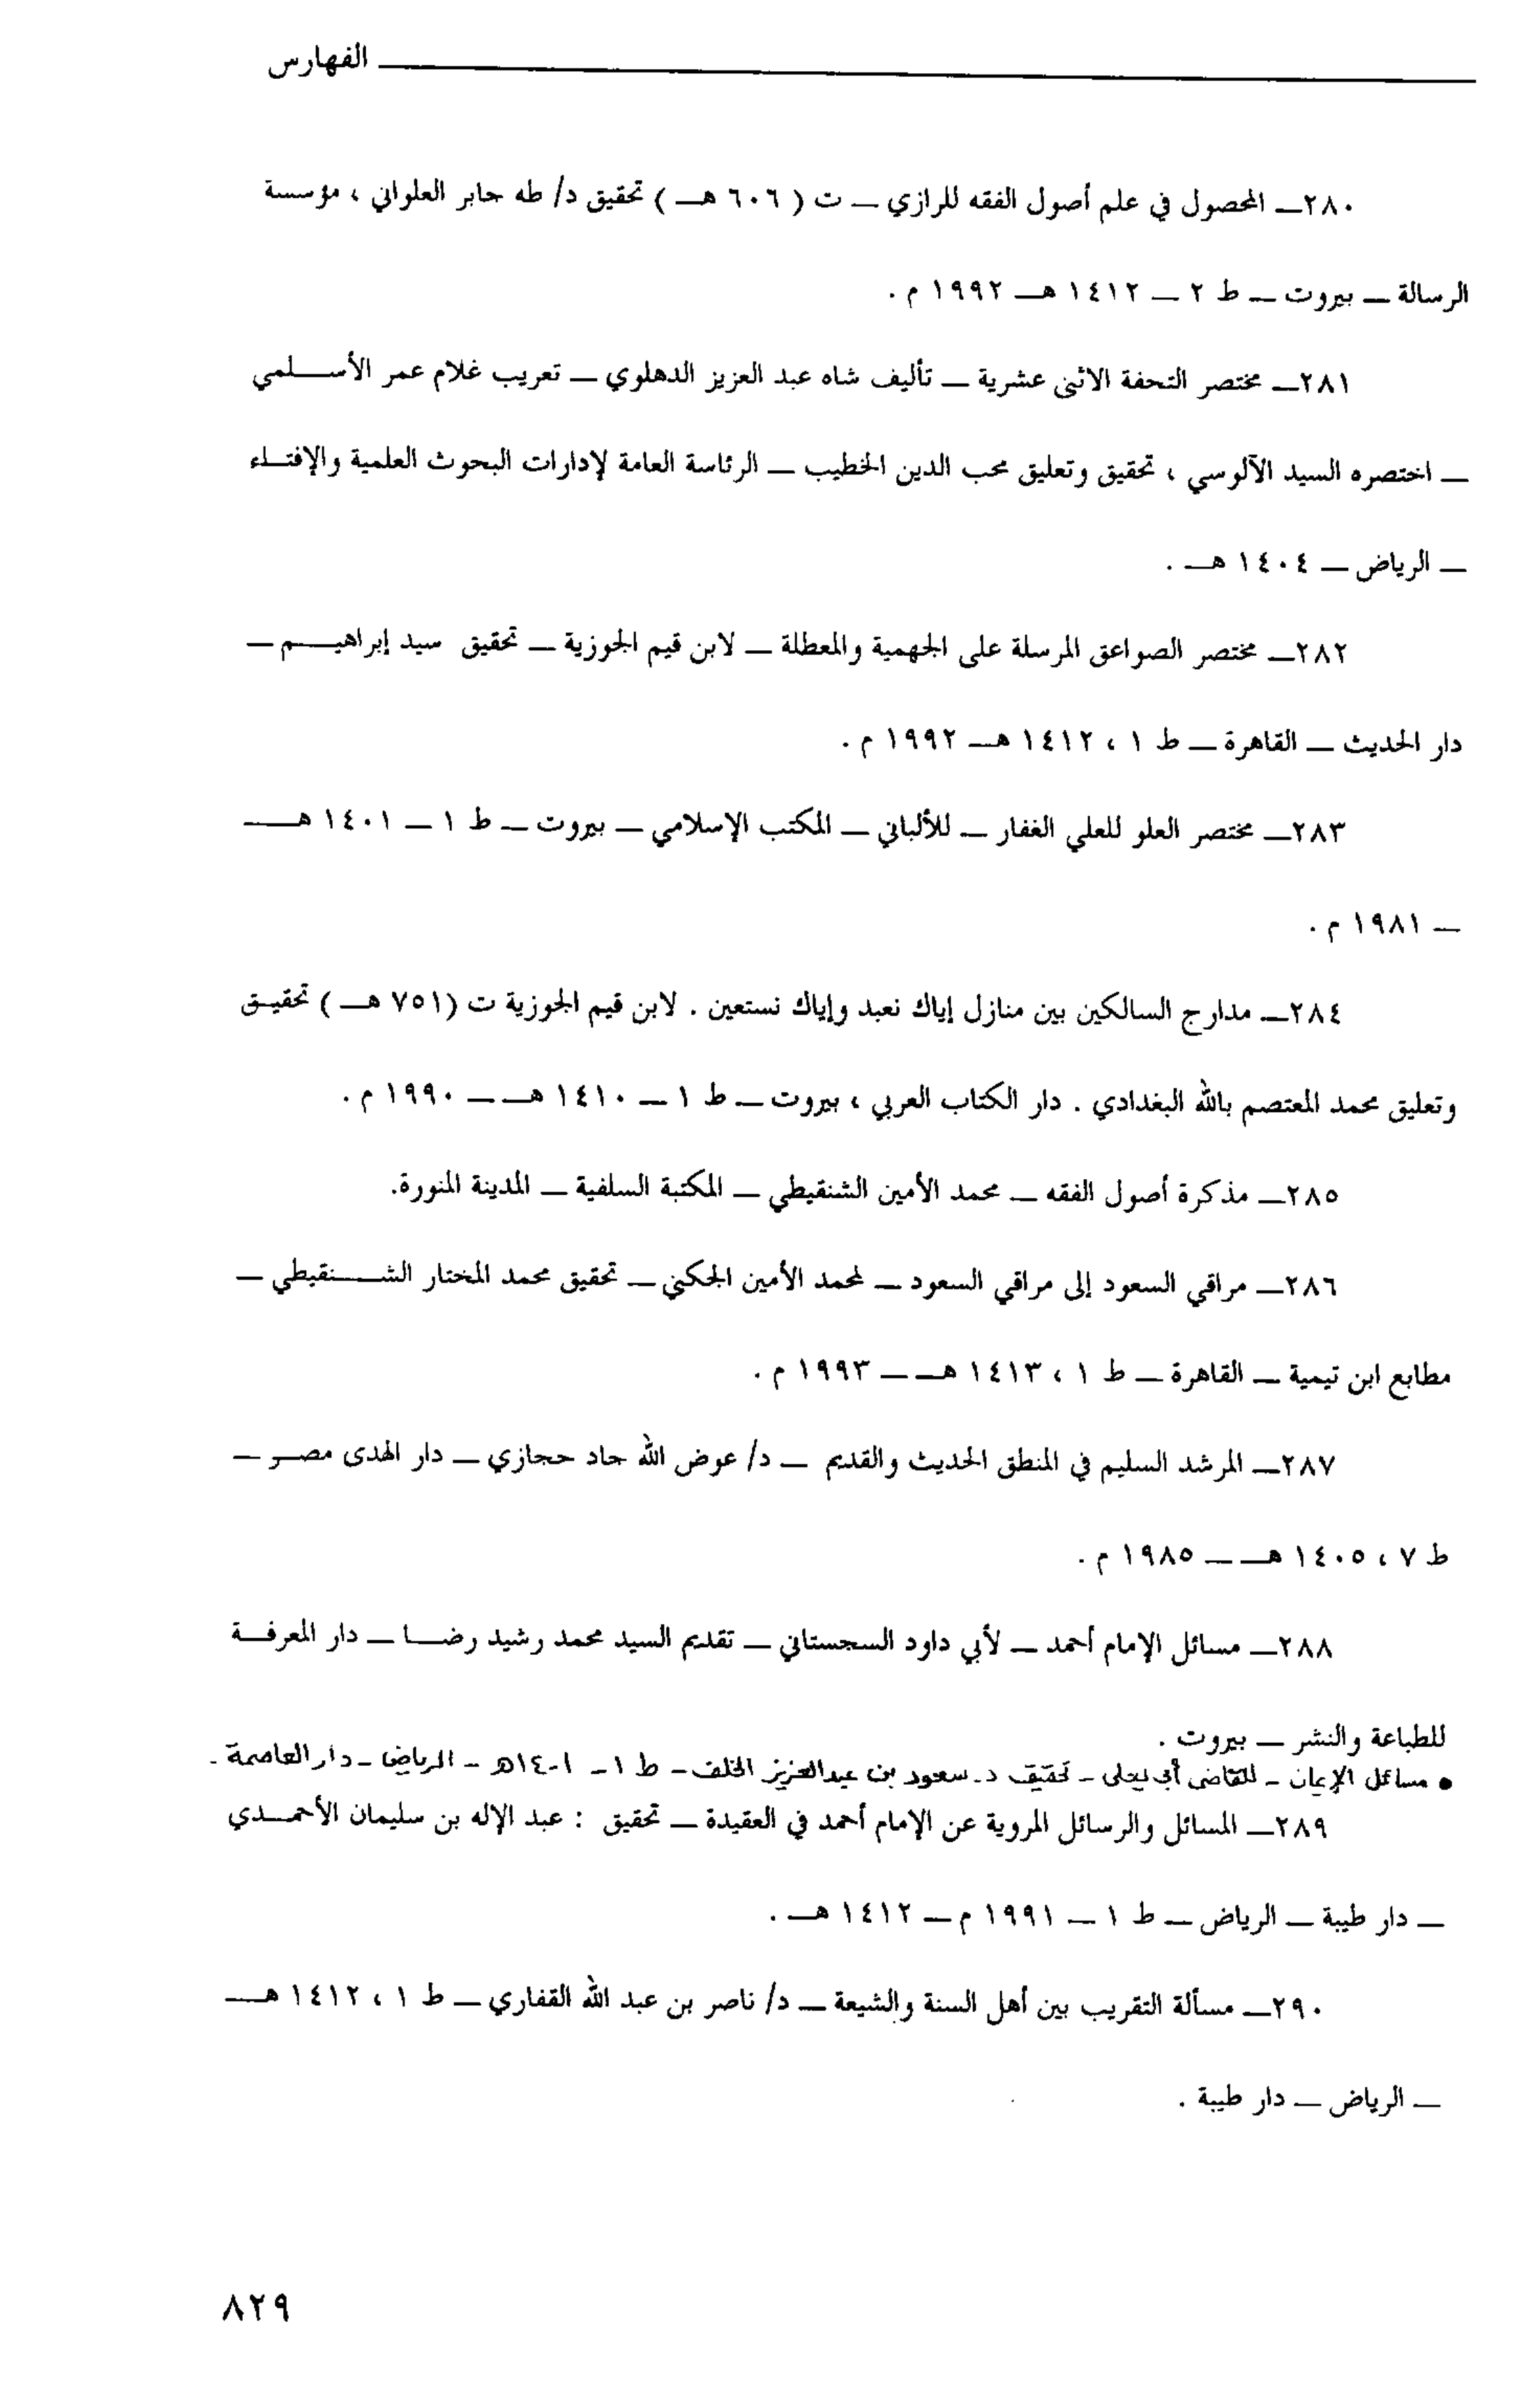 الفهارس
٢٨٠ــ المحصول في علم أصول الفقه للرازي ــ ت ( ٦٠٦ هــ ) تحقيق د/ طه جابر العلواني ، مؤسسة
الرسالة ــ بيروت ــ ط ٢ ــ ١٤١٢ هــ ١٩٩٢ م .
٢٨١ــ مختصر التحفة الاثنى عشرية ــ تأليف شاه عبد العزيز الدهلوي ــ تعريب غلام عمر الأســلمي
ــ اختصره السيد الآلوسي ، تحقيق وتعليق محب الدين الخطيب ــ الرئاسة العامة لإدارات البحوث العلمية والإفتــاء
ــ الرياض ــ ١٤٠٤ هــ .
٢٨٢ــ مختصر الصواعق المرسلة على الجهمية والمعطلة ــ لابن قيم الجوزية ــ تحقيق سيد إبراهيــم ــ
دار الحديث ــ القاهرة ــ ط ١ ، ١٤١٢ هــ ١٩٩٢ م .
٢٨٣ــ مختصر العلو للعلي الغفار ــ للألباني ــ المكتب الإسلامي ــ بيروت ــ ط ١ ــ ١٤٠١ هــ
ــ ١٩٨١ م .
٢٨٤ــ مدارج السالكين بين منازل إياك نعبد وإياك نستعين . لابن قيم الجوزية ت (٧٥١ هــ ) تحقيـق
وتعليق محمد المعتصم بالله البغدادي . دار الكتاب العربي ، بيروت ــ ط ١ ــ ١٤١٠ هــ ــ ١٩٩٠ م .
٢٨٥ــ مذكرة أصول الفقه ــ محمد الأمين الشنقيطي ــ المكتبة السلفية ــ المدينة المنورة.
٢٨٦ــ مراقي السعود إلى مراقي السعود ــ لمحمد الأمين الجكني ــ تحقيق محمد المختار الشــنقيطي ــ
مطابع ابن تيمية ــ القاهرة ــ ط ١ ، ١٤١٣ هــ ــ ١٩٩٣ م .
٢٨٧ــ المرشد السليم في المنطق الحديث والقديم ــ د/ عوض الله جاد حجازي ــ دار الهدى مصـر ــ
ط ٧ ، ١٤٠٥ هــ ــ ١٩٨٥ م .
٢٨٨ــ مسائل الإمام أحمد ــ لأبي داود السجستاني ــ تقديم السيد محمد رشيد رضــا ــ دار المعرفـة
للطباعة والنشر ــ بيروت .
• مسائل الإيمان - للقاضي أبي يعلى - تحقيق د. سعود بن عبدالعزيز الخلف - ط ١ - ١٤٠١هـ - الرياض - دار العاصمة .
٢٨٩ــ المسائل والرسائل المروية عن الإمام أحمد في العقيدة ــ تحقيق : عبد الإله بن سليمان الأحمــدي
ــ دار طيبة ــ الرياض ــ ط ١ ــ ١٩٩١ م ــ ١٤١٢ هــ .
٢٩٠ــ مسألة التقريب بين أهل السنة والشيعة ــ د/ ناصر بن عبد الله القفاري ــ ط ١ ، ١٤١٢ هــ
ــ الرياض ــ دار طيبة .
٨٢٩